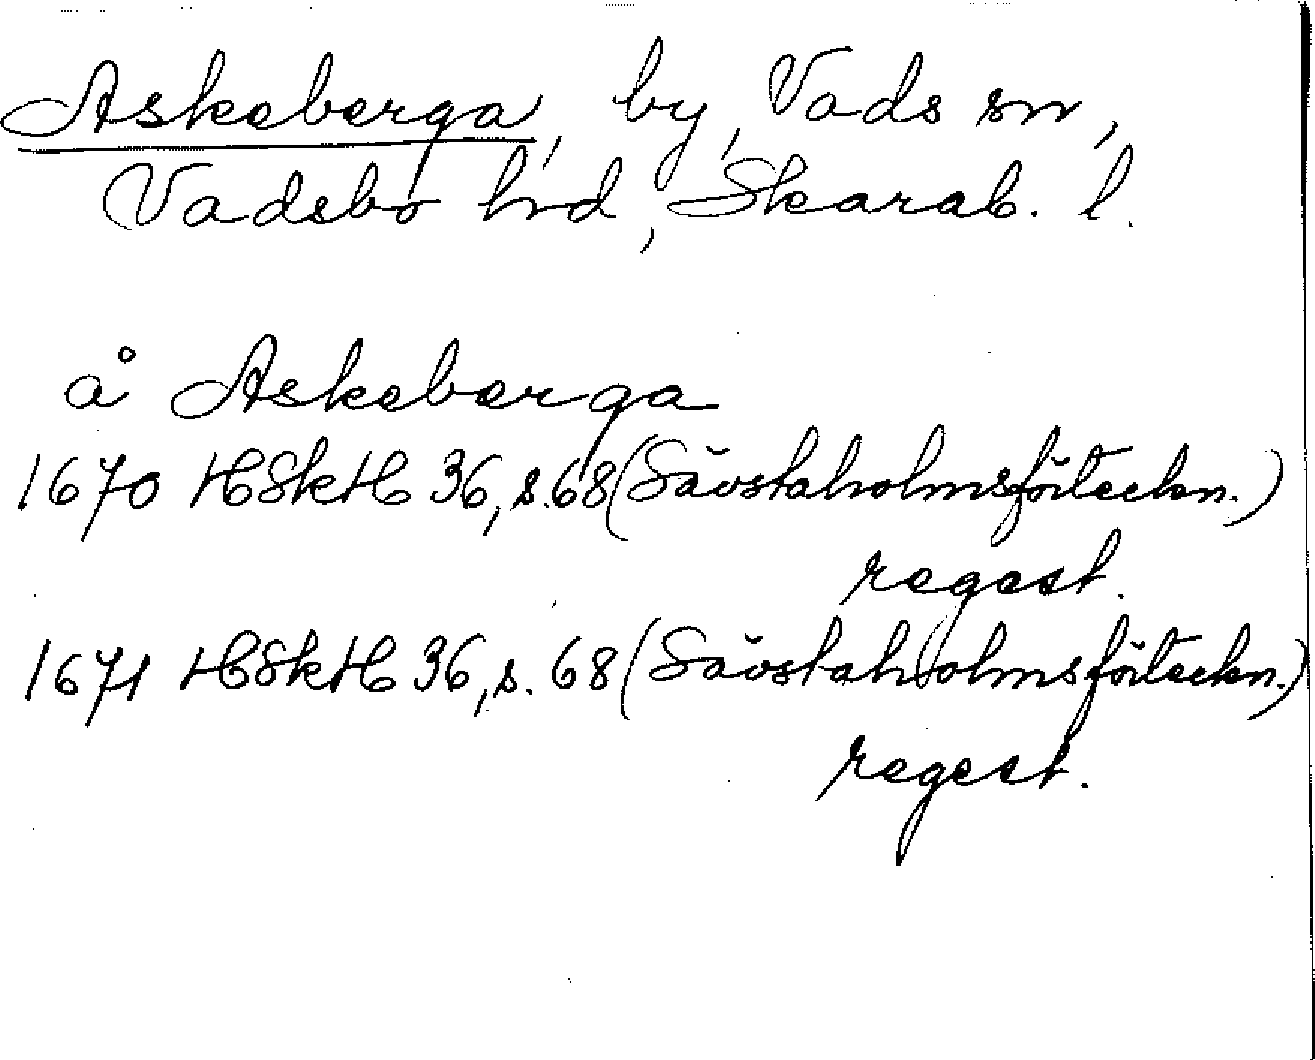 Askeberga, by, Vads sn,
Vadsbo hrd, Skarab. l.
å Askeberga
1670 HSkH 36, s. 68 (Sävstaholmsförteckn.)
regest.
1671 HSkH 36, s. 68 (Sävstaholmsförteckn.)
regest.